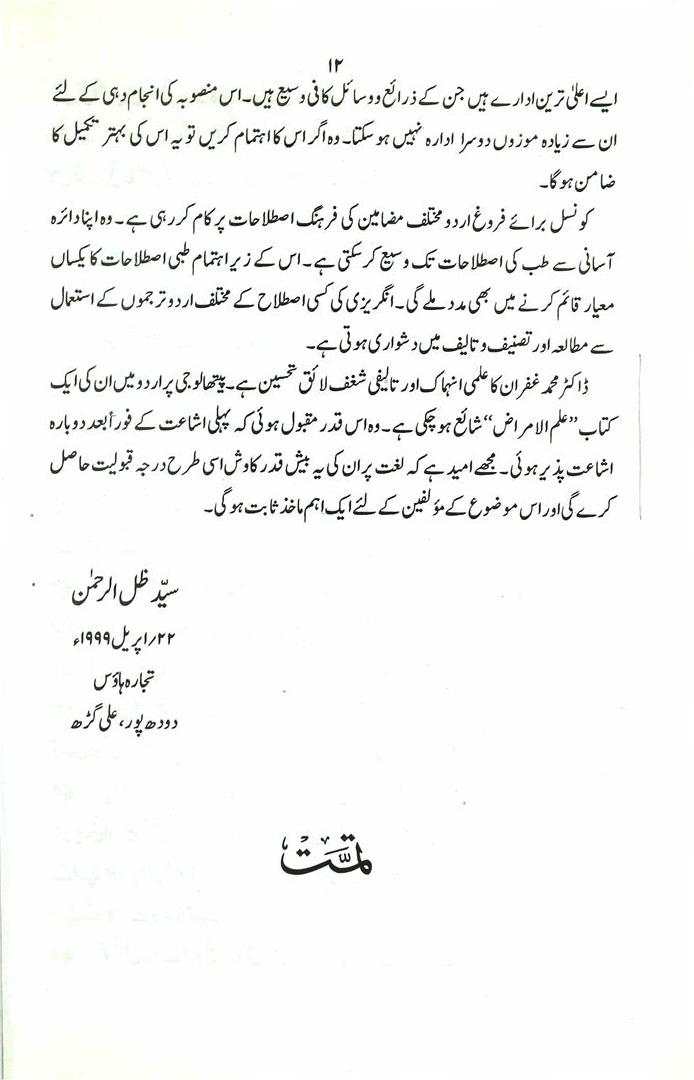 ۱۲
ایسے اعلیٰ ترین ادارے ہیں جن کے ذرائع و وسائل کافی وسیع ہیں۔ اس منصوبہ کی انجام دہی کے لئے
ان سے زیادہ موزوں دوسرا ادارہ نہیں ہو سکتا۔ وہ اگر اس کا اہتمام کریں تو یہ اس کی بہتر تکمیل کا
ضامن ہوگا۔
کونسل برائے فروغ اردو مختلف مضامین کی فرہنگ اصطلاحات پر کام کر رہی ہے۔ وہ اپنا دائرہ
آسانی سے طب کی اصطلاحات تک وسیع کر سکتی ہے۔ اس کے زیر اہتمام طبی اصطلاحات کا یکساں
معیار قائم کرنے میں بھی مدد ملے گی۔ انگریزی کی کسی اصطلاح کے مختلف اردو ترجموں کے استعمال
سے مطالعہ اور تصنیف و تالیف میں دشواری ہوتی ہے۔
ڈاکٹر محمد غفران کا علمی انہماک اور تالیفی شغف لائق تحسین ہے۔ پیتھالوجی پر اردو میں ان کی ایک
کتاب ”علم الامراض“ شائع ہو چکی ہے۔ وہ اس قدر مقبول ہوئی کہ پہلی اشاعت کے فوراً بعد دوبارہ
اشاعت پذیر ہوئی۔ مجھے امید ہے کہ لغت پر ان کی یہ بیش قدر کاوش اسی طرح درجہ قبولیت حاصل
کرے گی اور اس موضوع کے مؤلفین کے لئے ایک اہم ماخذ ثابت ہوگی۔
سیّد ظل الرحمٰن
۲۲/اپریل ۱۹۹۹ء
تجارہ ہاؤس
دودھ پور، علی گڑھ
تمّت